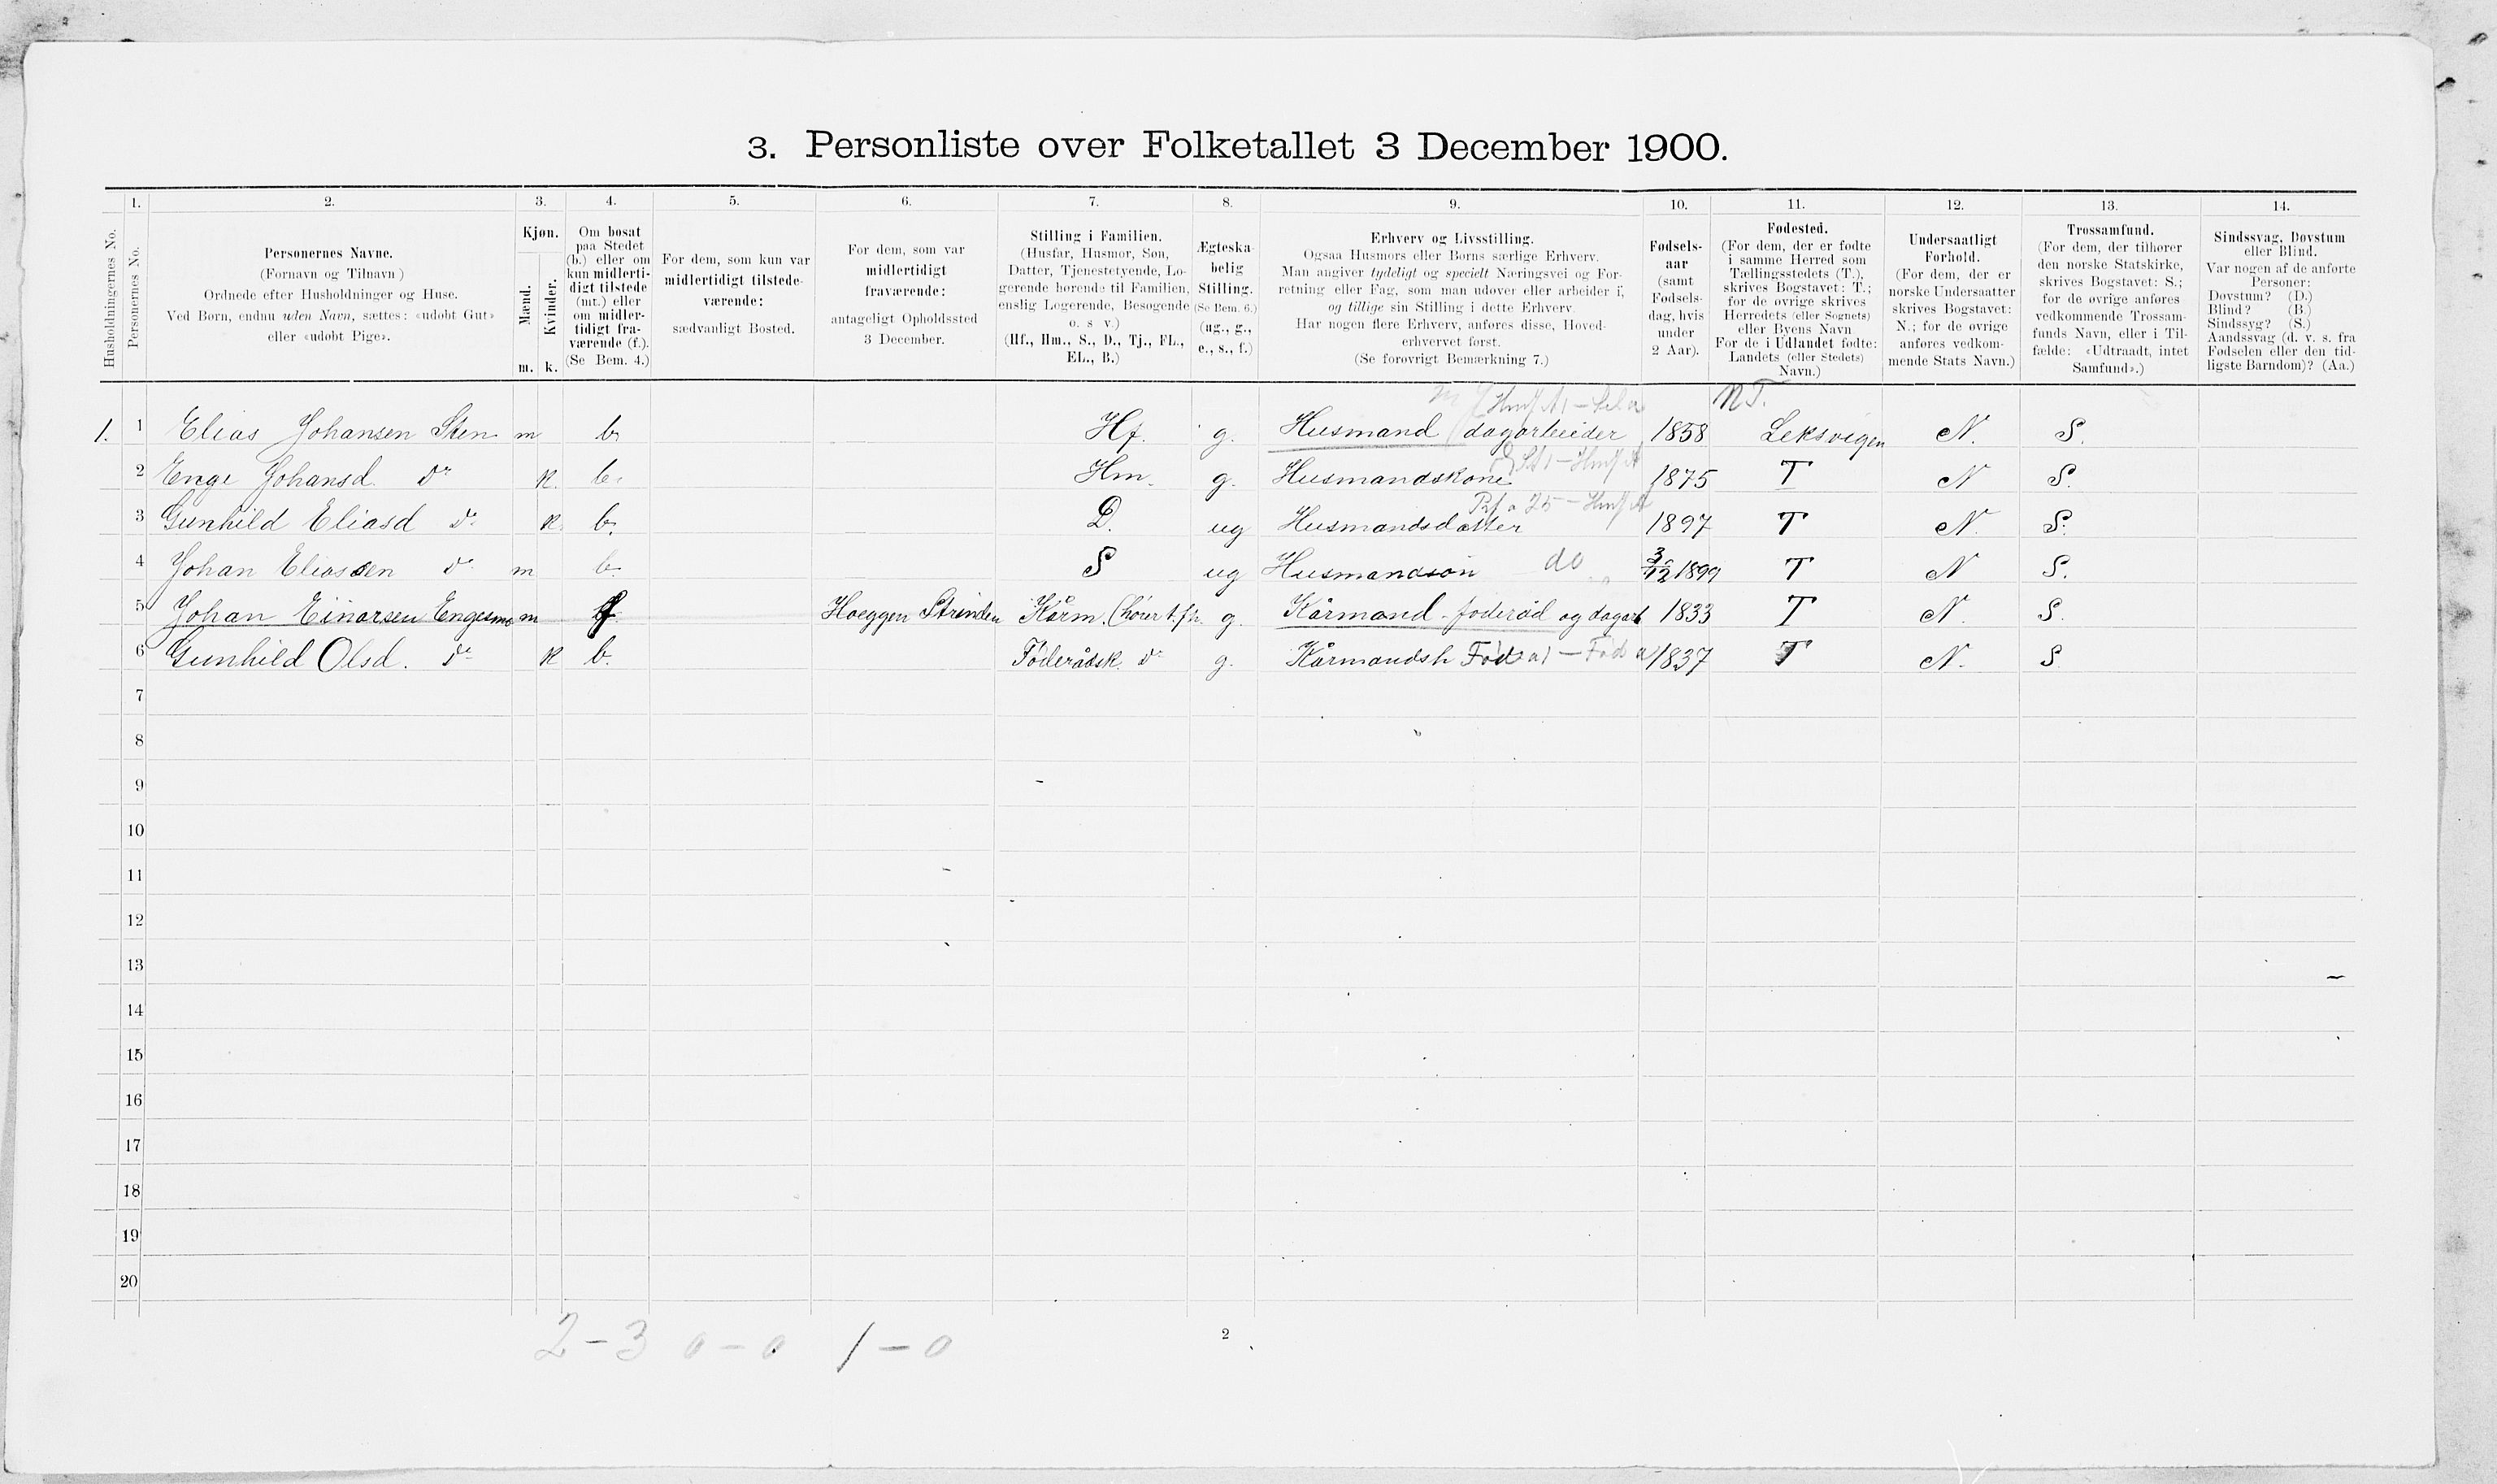 3. Personliste over Folketallet 3 December 1900.
1. 2. 3. 4. 5. 6. 7. 8. 9. 10. 11. 12. 13. 14.
Husholdningernes No.
Personernes No.
Personernes Navne.
(Fornavn og Tilnavn)
Ordnede efter Husholdninger og Huse.
Ved Børn, endnu uden Navn, sættes: «udøbt Gut»
eller «udøbt Pige».
Kjøn.
Mænd.
Kvinder.
m. k.
Om bosat
paa Stedet
(b.) eller om
kun midlerti-
digt tilstede
(mt.) eller
om midler-
tidigt fra-
værende (f.).
(Se Bem. 4.)
For dem, som kun var
midlertidigt tilstede-
værende:
sædvanligt Bosted.
For dem, som var
midlertidigt
fraværende:
antageligt Opholdssted
3 December.
Stilling i Familien.
(Husfar, Husmor, Søn,
Datter, Tjenestetyende, Lo-
gerende hørende til Familien,
enslig Logerende, Besøgende
o. s v.)
(Hf., Hm., S., D., Tj., FL.,
EL., B.)
Ægteska-
belig
Stilling.
(Se Bem. 6.)
(ug., g.,
e., s., f.)
Erhverv og Livsstilling.
Ogsaa Husmors eller Børns særlige Erhverv.
Man angiver tydeligt og specielt Næringsvei og For-
retning eller Fag, som man udøver eller arbeider i,
og tillige sin Stilling i dette Erhverv.
Har nogen flere Erhverv, anføres disse, Hoved-
erhvervet først.
(Se forøvrigt Bemærkning 7.)
Fødsels-
aar
(samt
Fødsels-
dag, hvis
under
2 Aar).
Fødested.
(For dem, der er fødte
i samme Herred som
Tællingsstedets (T.),
skrives Bogstavet: T.;
for de øvrige skrives
Herredets (eller Sognets)
eller Byens Navn
For de i Udlandet fødte:
Landets (eller Stedets)
Navn.)
Undersaatligt
Forhold.
(For dem, der er
norske Undersaatter
skrives Bogstavet:
N.; for de øvrige
anføres vedkom-
mende Stats Navn.)
Trossamfund.
(For dem, der tilhører
den norske Statskirke,
skrives Bogstavet: S.;
for de øvrige anføres
vedkommende Trossam-
funds Navn, eller i Til-
fælde: «Udtraadt, intet
Samfund».)
Sindssvag, Døvstum
eller Blind.
Var nogen af de anførte
Personer:
Døvstum? (D.)
Blind? (B.)
Sindssyg? (S.)
Aandssvag (d. v. s. fra
Fødselen eller den tid-
ligste Barndom)? (Aa.)
NT.
1. 1 Elias Johansen Sten m b. Hf. g. Husmand dagarbeider 1858 Leksvigen N. S.
2 Enge Johansd. do k. b. Hm. g. Husmandskone 1875 T N S.
3 Gunhild Eliasd do k. b. D. ug Husmandsdatter 1897 T N. S.
4 Johan Eliassen do m b. S ug Husmandsøn do 3/12 1899 T N S.
5 Johan Einarsen Engesmo m f Hoeggen Strinden Kårm. (hører t. fr. g. Kårmand-føderåd og dagarb 1833 T N. S.
6 Gunhild Olsd. do k b. Føderådsk. do g. Kårmandsk Fød 1837 T N. S
7
8
9
10
11
12
13
14
15
16
17
18
19
20
2 - 3 0 - 0 1 - 0
2